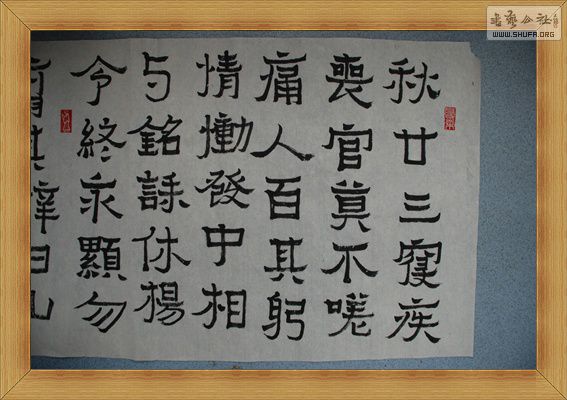 秋廿三寑疾
喪官莫不嗟
痛人百其躬
情慟發中相
与銘誄休楊
令終永顯勿
其曰
书艺公社
WWW.SHUFA.ORG